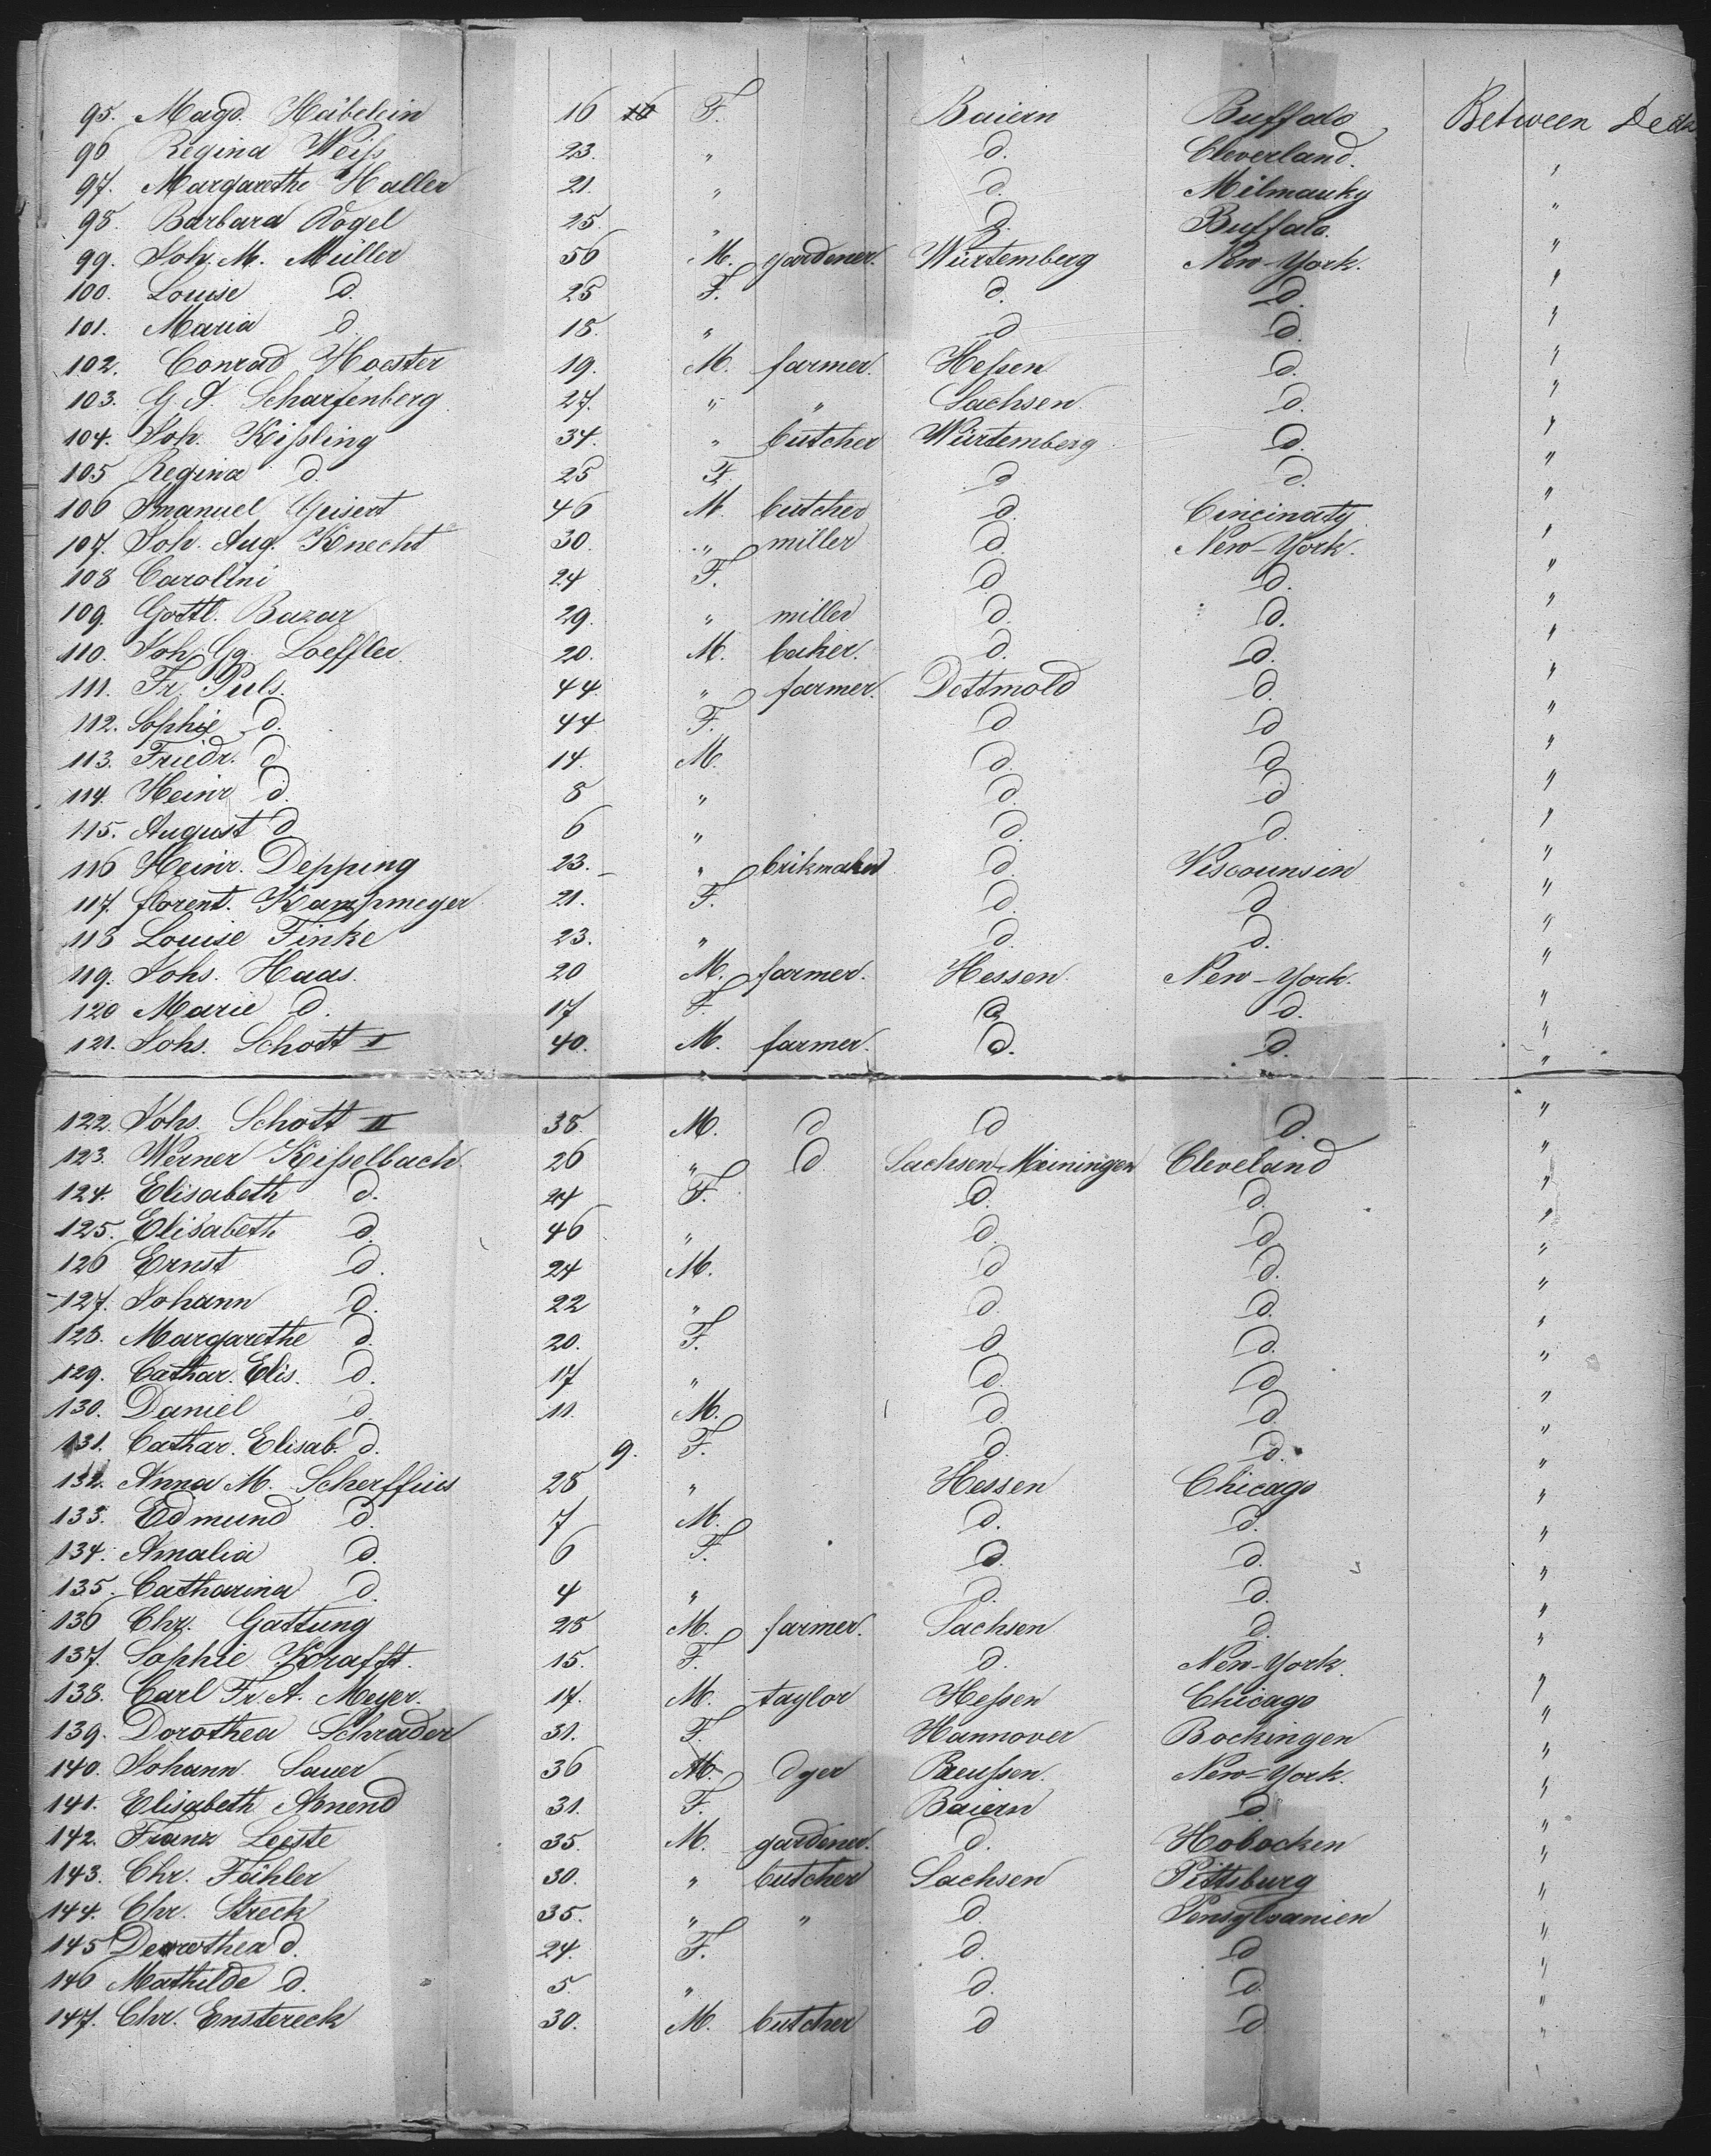 95. Magd. Häbelein 16 10 F. Baiern Buffalo Between Deck
96 Regina Weiſs 23. " d. Cleverland. "
97. Margarethe Haller 21. " d. Milmauky "
98. Barbara Vogel 25. " d. Buffalo. "
99. Joh. M. Müller 56 M. gardener. Würtemberg New-York. "
100. Louise d. 25 F. d. d. "
101. Maria d. 18. " d. d. "
102. Conrad Hoester 19. M. farmer. Heſsen d. "
103. G. A. Scharfenberg 27. " " Sachsen. d. "
104. Joh. Kiſsling 34. " butcher Würtemberg d. "
105 Regina d. 25 F. d d. "
106 Imanuel Geisert 46 M. butcher d. Cincinaty "
107. Joh. Aug. Knecht 30. " miller d. New-York. "
108 Carolini 24 F. d d. "
109. Gottl. Bazar 29. " miller d. d. "
110. Joh. Gg. Loeffler 20. M. baker. d. d. "
111. Fr. Puls. 44. " farmer. Dettmold d. "
112. Sophie d. 44 F. d d "
113. Friedr. d 14. M. d. d "
114. Heinr d. 8 " d. d "
115. August d 6 " d. d. "
116 Heinr. Depping 23. " brikmaker d. Viscounsin "
117. florent. Kampmeyer 21. F. d. d "
118 Louise Finke 23. " d. d. "
119. Johs. Haas. 20 M. farmer. Hessen. New-York. "
120 Marie d. 17 F. d. d. "
121. Johs. Schott I 40. M. farmer. d. d. "
122. Johs. Schott II 38. M. d d d. "
123. Werner Kiſselbach 26 " d Sachsen-Meiningen Cleveland "
124. Elisabeth d. 24 F. d. d. "
125. Elisabeth d. 46 " d. d. "
126 Ernst d. 24 M. d d. "
127. Johann d. 22 " d. d. "
128. Margarethe d. 20. F. d d. "
129. Cathar. Elis. d. 17 " d. d "
130. Daniel d. 11. M. d. d. "
131. Cathar. Elisab. d. 9. F. d. d. "
132. Anna M. Scherffius 28 " Hessen Chicago "
133. Edmund d. 7 M. d. d. "
134. Amalia d. 6 F. d. d. "
135. Catharina d. 4 " d. d. "
136 Chr. Gattung 28 M. farmer. Sachsen d. "
137. Sophie Krafft. 15. F. d. New-York. "
138. Carl Fr. A. Meyer. 17. M. taylor Heſsen Chicago "
139. Dorothea Schrader 31. F. Hannover Bockingen "
140. Johann Sauer 36 M. dyer Preuſsen. New-York. "
141. Elisabeth Amend 31. F. Baiern d "
142. Franz Leeste 35. M. gardener. d. Hobocken "
143. Chr. Fähler 30. " butcher Sachsen Pittsburg "
144. Chr. Streck 35. " " d. Pensylvanien "
145 Dorothea d. 24. F. d. d "
146 Mathilde d. 5. " d. d "
147. Chr. Enstereck 30. M. butcher d d "